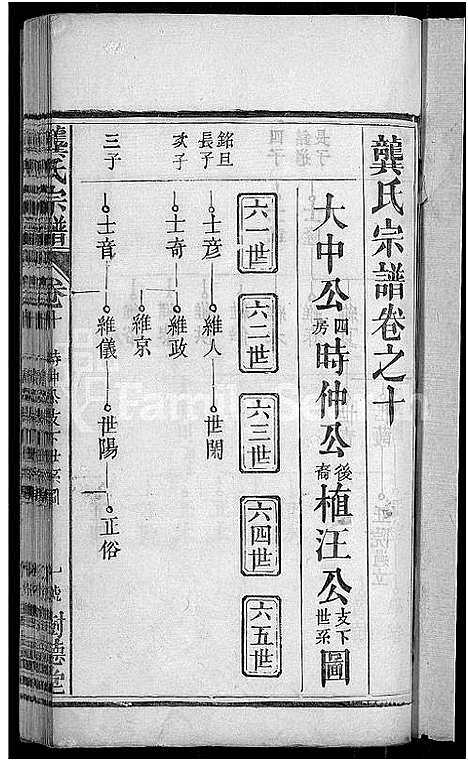 龔氏宗譜卷之十
大中公四房時仲公後裔植汪公支下世系圖
六一世
六二世
六三世
六四世
六五世
銘旦長子
士彥
維人
世閑
次子
士奇
維政
維京
三子
士音
維儀
世陽
正俗
龔氏宗譜
卷十